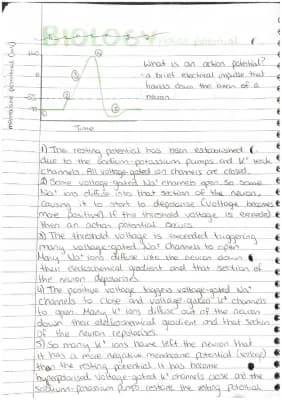 BIOLOGY
membrane potential (mV)
+40
0
-55
-70
Time
What is an action potential?
- a brief electrical impulse that
travels down the axon of a
neuron.
1) The resting potential has been established
due to the sodium-potassium pumps and K+ leak
channels. All voltage-gated ion channels are closed.
2) Some voltage-gated Na+ channels open so some
Na+ ions diffuse into that section of the neuron,
causing it to start to depolarise (voltage becomes
more positive). If the threshold voltage is exceeded
then an action potential occurs.
3) The threshold voltage is exceeded triggering
many voltage-gated Na+ channels to open.
Many Na+ ions diffuse into the neuron down
their electrochemical gradient and that section of
the neuron depolarises.
4) The positive voltage triggers voltage-gated Na+
channels to close and voltage-gated K+ channels
to open. Many K+ ions diffuse out of the neuron
down their electrochemical gradient and that section
of the neuron repolarises.
5) So many K+ ions have left the neuron that
it has a more negative membrane potential (voltage)
than the resting potential. It has become
hyperpolarised. Voltage-gated K+ channels close and the
sodium-potassium pumps restore the resting potential.